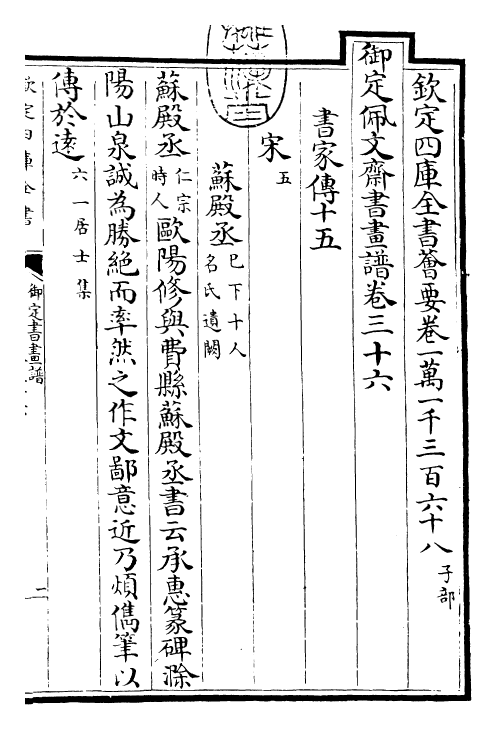 欽定四庫全書薈要卷一萬一千三百六十八 子部
御定佩文齋書畫譜卷三十六
書家傳十五
宋五
蘇殿丞 已下十人名氏遺闕
蘇殿丞 仁宗時人 歐陽修與費縣蘇殿丞書云承惠篆碑滁
陽山泉誠為勝絕而率然之作文鄙意近乃煩儁筆以
傳於逺 六一居士集
欽定四庫全書
御定書畫譜
二